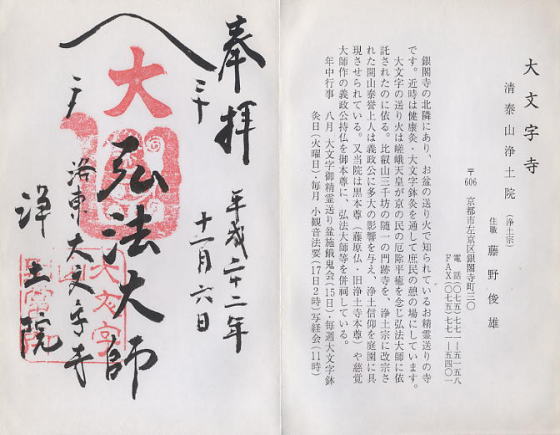 大文字寺
清泰山浄土院（浄土宗）
住職 藤野俊雄
〒606 京都市左京区銀閣寺町三〇
電話（〇七五）七七一―五一五八
FAX（〇七五）七七一―五四〇一
銀閣寺の北隣にあり、お盆の送り火で知られているお精霊送りの寺
です。近時は健康灸・大文字鉢灸を通して庶民の憩の場にしています。
大文字の送り火は嵯峨天皇が京の民の厄除平癒を念じ弘法大師に依
託されたのに依る。比叡山三千坊の随一の門跡寺を、浄土宗に改宗さ
れた開山泰誉上人は義政公に多大の影響を与え、浄土信仰を庭園に具
現させられている。又当院は黒本尊（藤原仏・旧浄土寺本尊）や慈覚
大師作の義政公持仏を御本尊に、弘法大師等を併祠している。
年中行事 八月 大文字御精霊送り盆施餓鬼会（15日）・毎週大文字鉢
灸日（火曜日）・毎月 小観音法要（17日2時）写経会（11時）
奉拝
平成二十二年
十一月六日
大
弘法大師
洛東大文字寺
浄土院
大文字